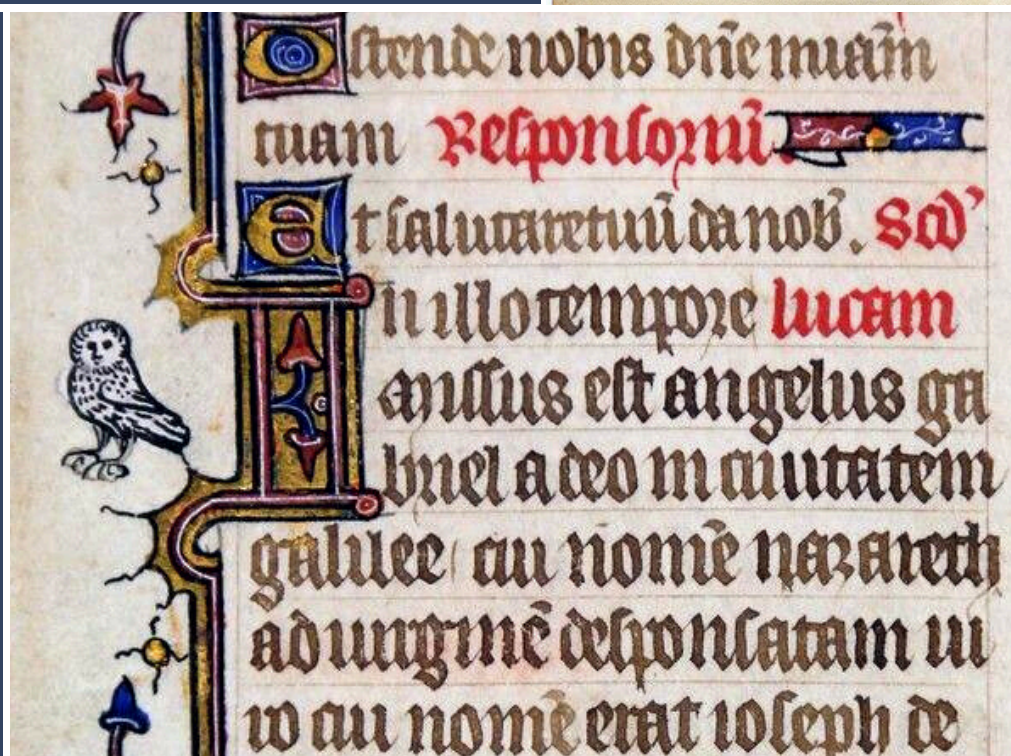 Ostende nobis dñe miȧm
tuam Responsoriū.
Et salutare tuū da nob̄. Scd̾
In illo tempore lucam
missus est angelus ga
briel a deo in ciuitatem
galilee cui nomē nazareth
ad uirginē desponsatam ui
ro cui nomē erat ioseph de